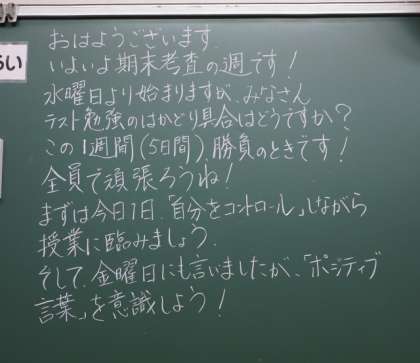 らい
おはようございます.
いよいよ期末考査の週です!
水曜日より始まりますが、みなさん
テスト勉強のはかどり具合はどうですか?
この1週間(5日間)、勝負のときです!
全員で頑張ろうね!
まずは今日1日、「自分をコントロール」しながら
授業に臨みましょう.
そして、金曜日にも言いましたが、「ポジティブ
言葉」を意識しよう!